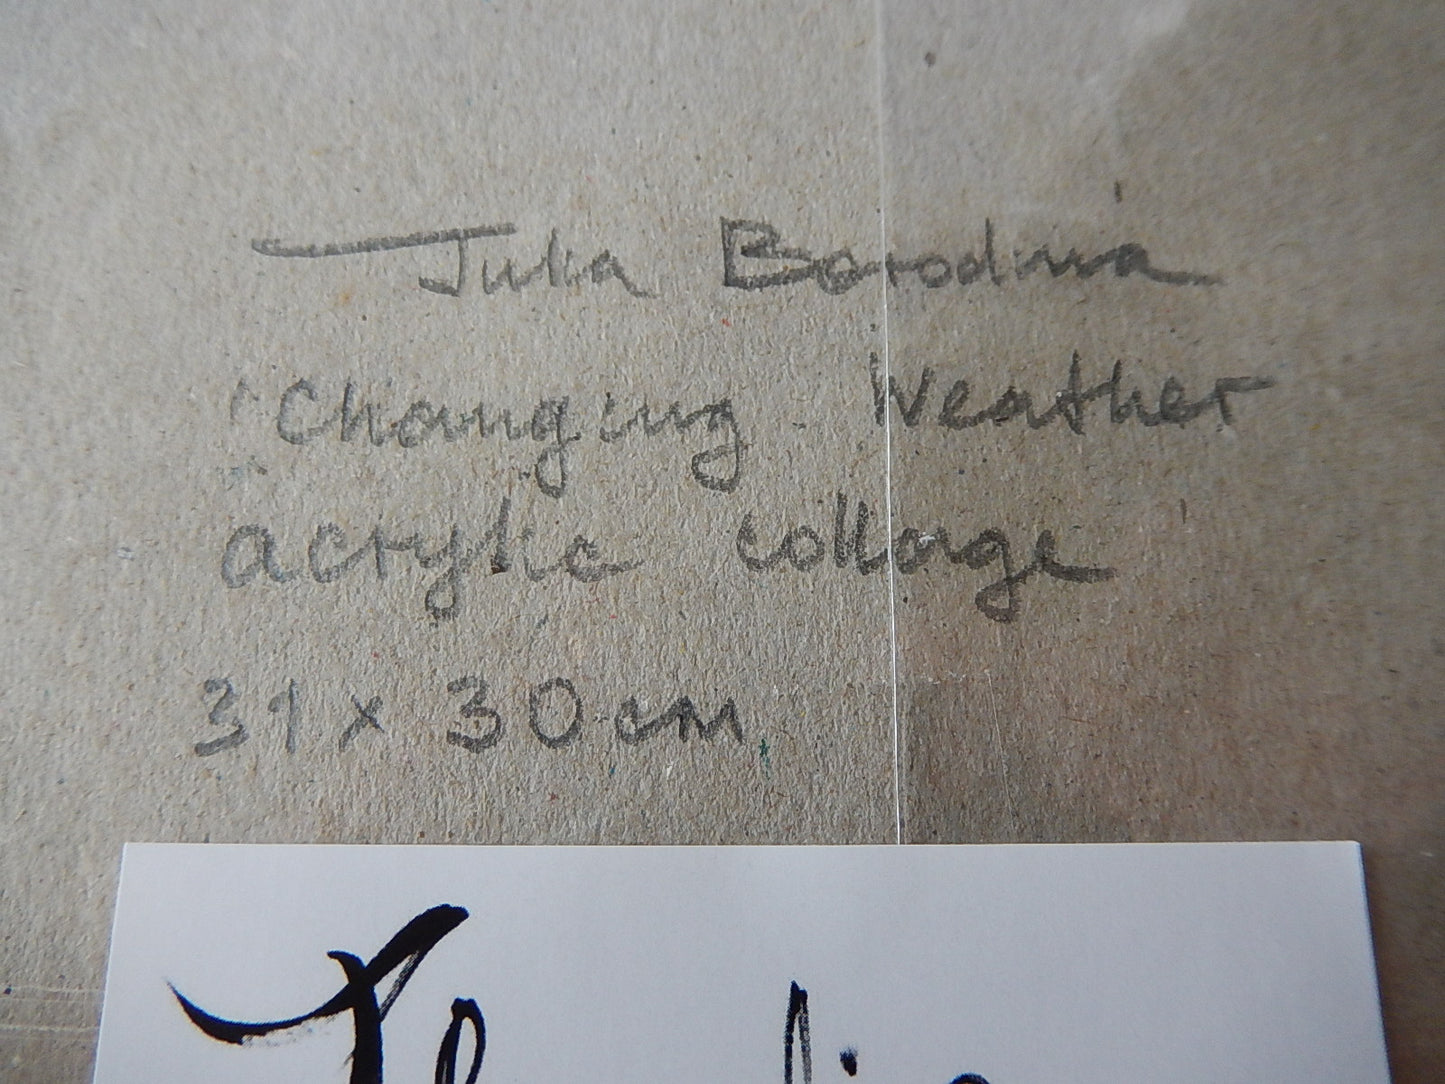 Julia Borodina
"Changing Weather
acrylic collage
31 x 30 cm